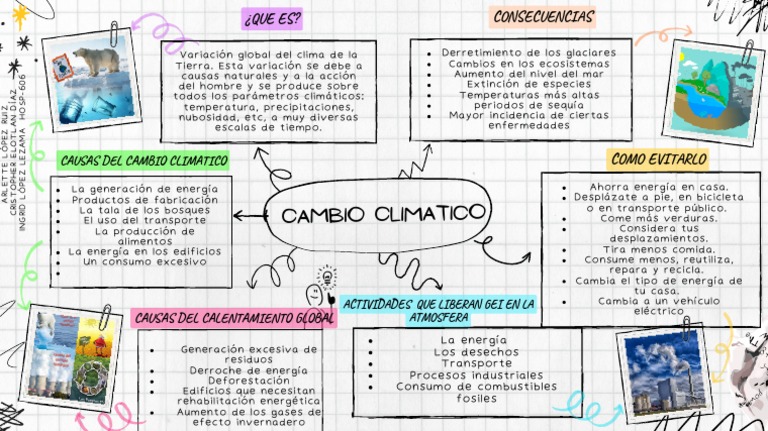 ¿QUE ES?
Variación global del clima de la
Tierra. Esta variación se debe a
causas naturales y a la acción
del hombre y se produce sobre
todos los parámetros climáticos:
temperatura, precipitaciones,
nubosidad, etc, a muy diversas
escalas de tiempo.
CONSECUENCIAS
Derretimiento de los glaciares
Cambios en los ecosistemas
Aumento del nivel del mar
Extinción de especies
Temperaturas más altas
periodos de sequía
Mayor incidencia de ciertas
enfermedades
ARLETTE LÓPEZ RUIZ
CRISTOPHER ELOTLAN DÍAZ
INGRID LÓPEZ LEZAMA HOSP-606
CAUSAS DEL CAMBIO CLIMATICO
La generación de energía
Productos de fabricación
La tala de los bosques
El uso del transporte
La producción de
alimentos
La energía en los edificios
Un consumo excesivo
CAMBIO CLIMATICO
COMO EVITARLO
Ahorra energía en casa.
Desplázate a pie, en bicicleta
o en transporte público.
Come más verduras.
Considera tus
desplazamientos.
Tira menos comida.
Consume menos, reutiliza,
repara y recicla.
Cambia el tipo de energía de
tu casa.
Cambia a un vehículo
eléctrico
CAUSAS DEL CALENTAMIENTO GLOBAL
Generación excesiva de
residuos
Derroche de energía
Deforestación
Edificios que necesitan
rehabilitación energética
Aumento de los gases de
efecto invernadero
ACTIVIDADES QUE LIBERAN GEI EN LA
ATMOSFERA
La energía
Los desechos
Transporte
Procesos industriales
Consumo de combustibles
fosiles